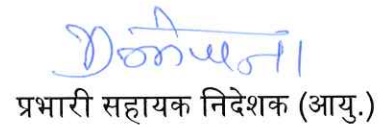 प्रभारी सहायक निदेशक (आयु.)